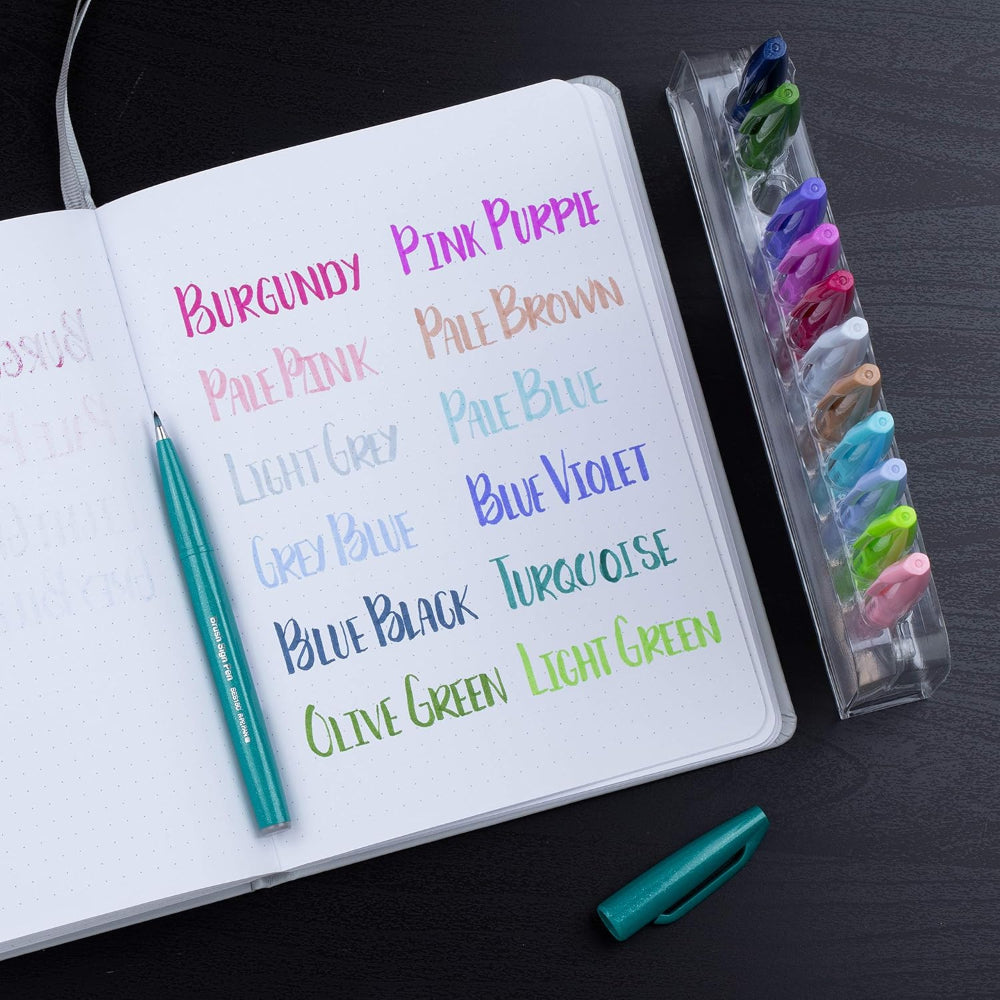 BURGUNDY PINK PURPLE
PALE PINK PALE BROWN
LIGHT GREY PALE BLUE
GREY BLUE BLUE VIOLET
BLUE BLACK TURQUOISE
OLIVE GREEN LIGHT GREEN
Brush Sign Pen